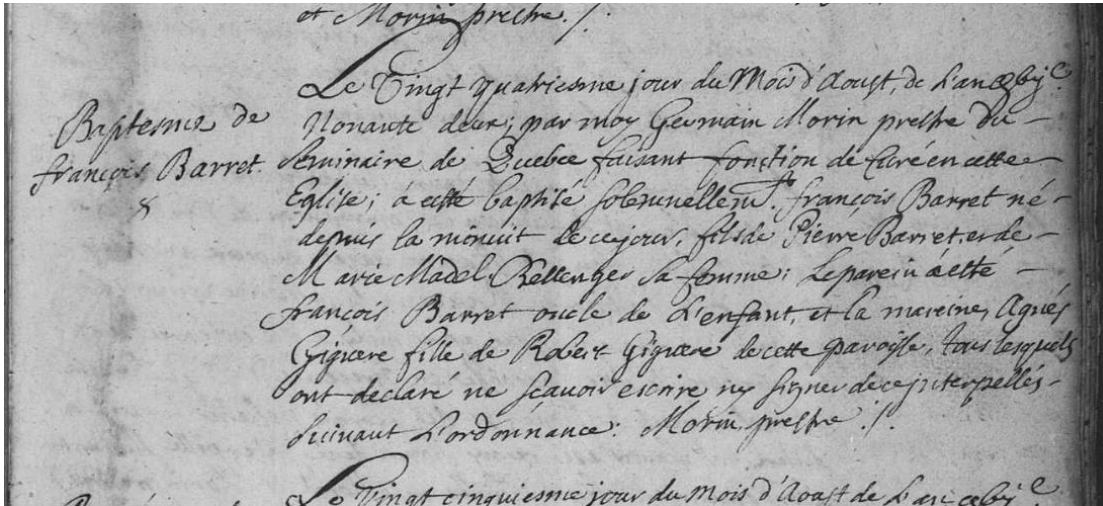 et Morin prestre ./.
Baptesme de
françois Barret.
Le Vingt quatriesme jour du Mois d'Aoust, de L'an
Nonante deux; par moy Germain Morin prestre du
Seminaire de Quebec faisant fonction de Curé en cette
Eglise; à esté baptisé solemnellemt. françois Barret né
depuis la minuit de ce jour, fils de Pierre Barret, et de
Marie Madel. Bellenger sa femme; Le parein à esté
françois Barret oncle de L'enfant, et la mareine, Agnés
Giguere fille de Robert Giguere de cette paroisse, tous lesquels
ont declaré ne sçavoir escrire ny signer de ce interpellés
suivant L'ordonnance: Morin prestre ./.
Le Vingt cinquiesme jour du Mois d'Aoust de L'an